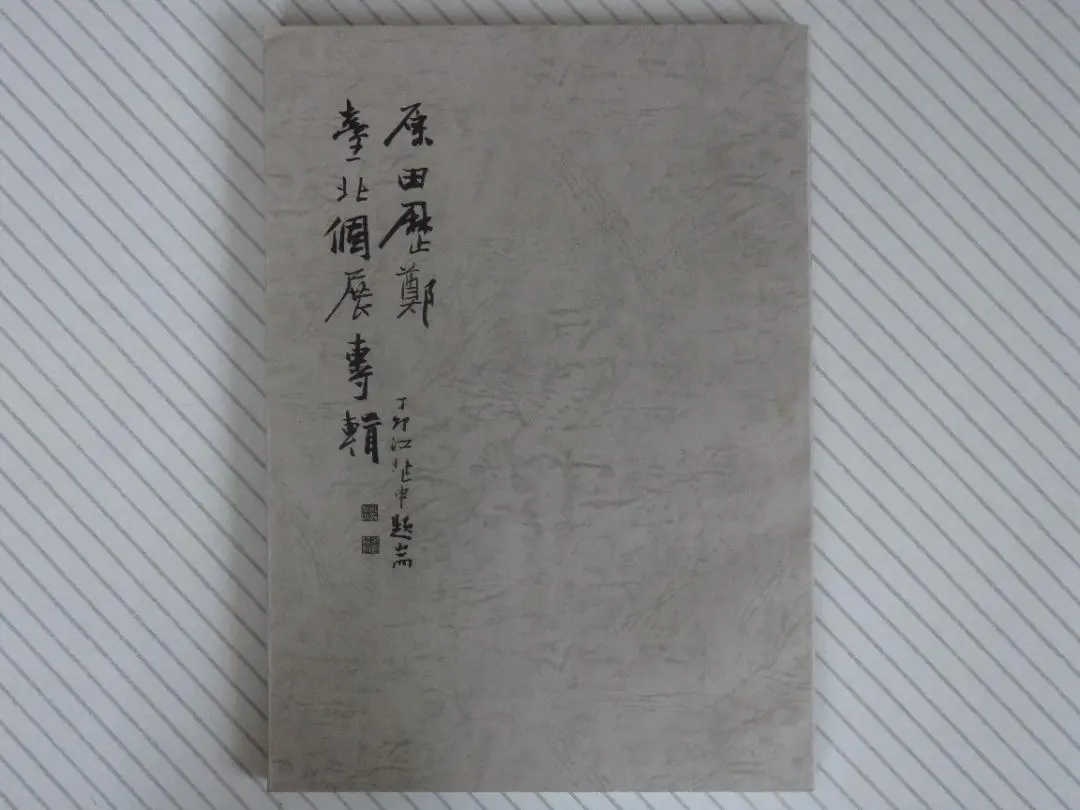 原田歷鄭
臺北個展專輯
丁卯江兆申題耑